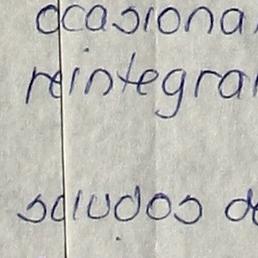 ocasiona
reintegra
saludos d